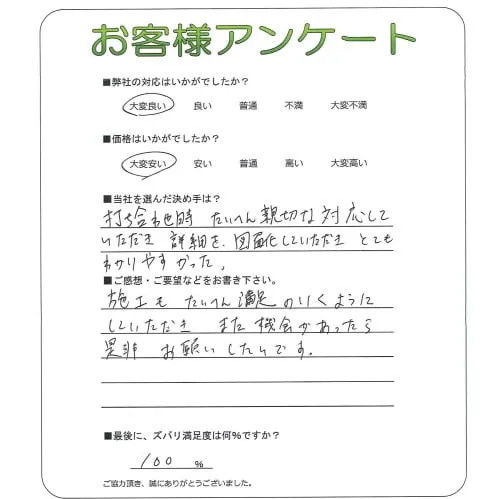 お客様アンケート
■弊社の対応はいかがでしたか？
大変良い 良い 普通 不満 大変不満
■価格はいかがでしたか？
大変安い 安い 普通 高い 大変高い
■当社を選んだ決め手は？
打ち合わせ時 たいへん親切な対応して
いただき 詳細を、図面化していただき とても
わかりやすかった。
■ご感想・ご要望などをお書き下さい。
施工も たいへん満足 のいくように
していただき また 機会があったら
是非 お願いしたいです。
■最後に、ズバリ満足度は何％ですか？
100 ％
ご協力頂き、誠にありがとうございました。